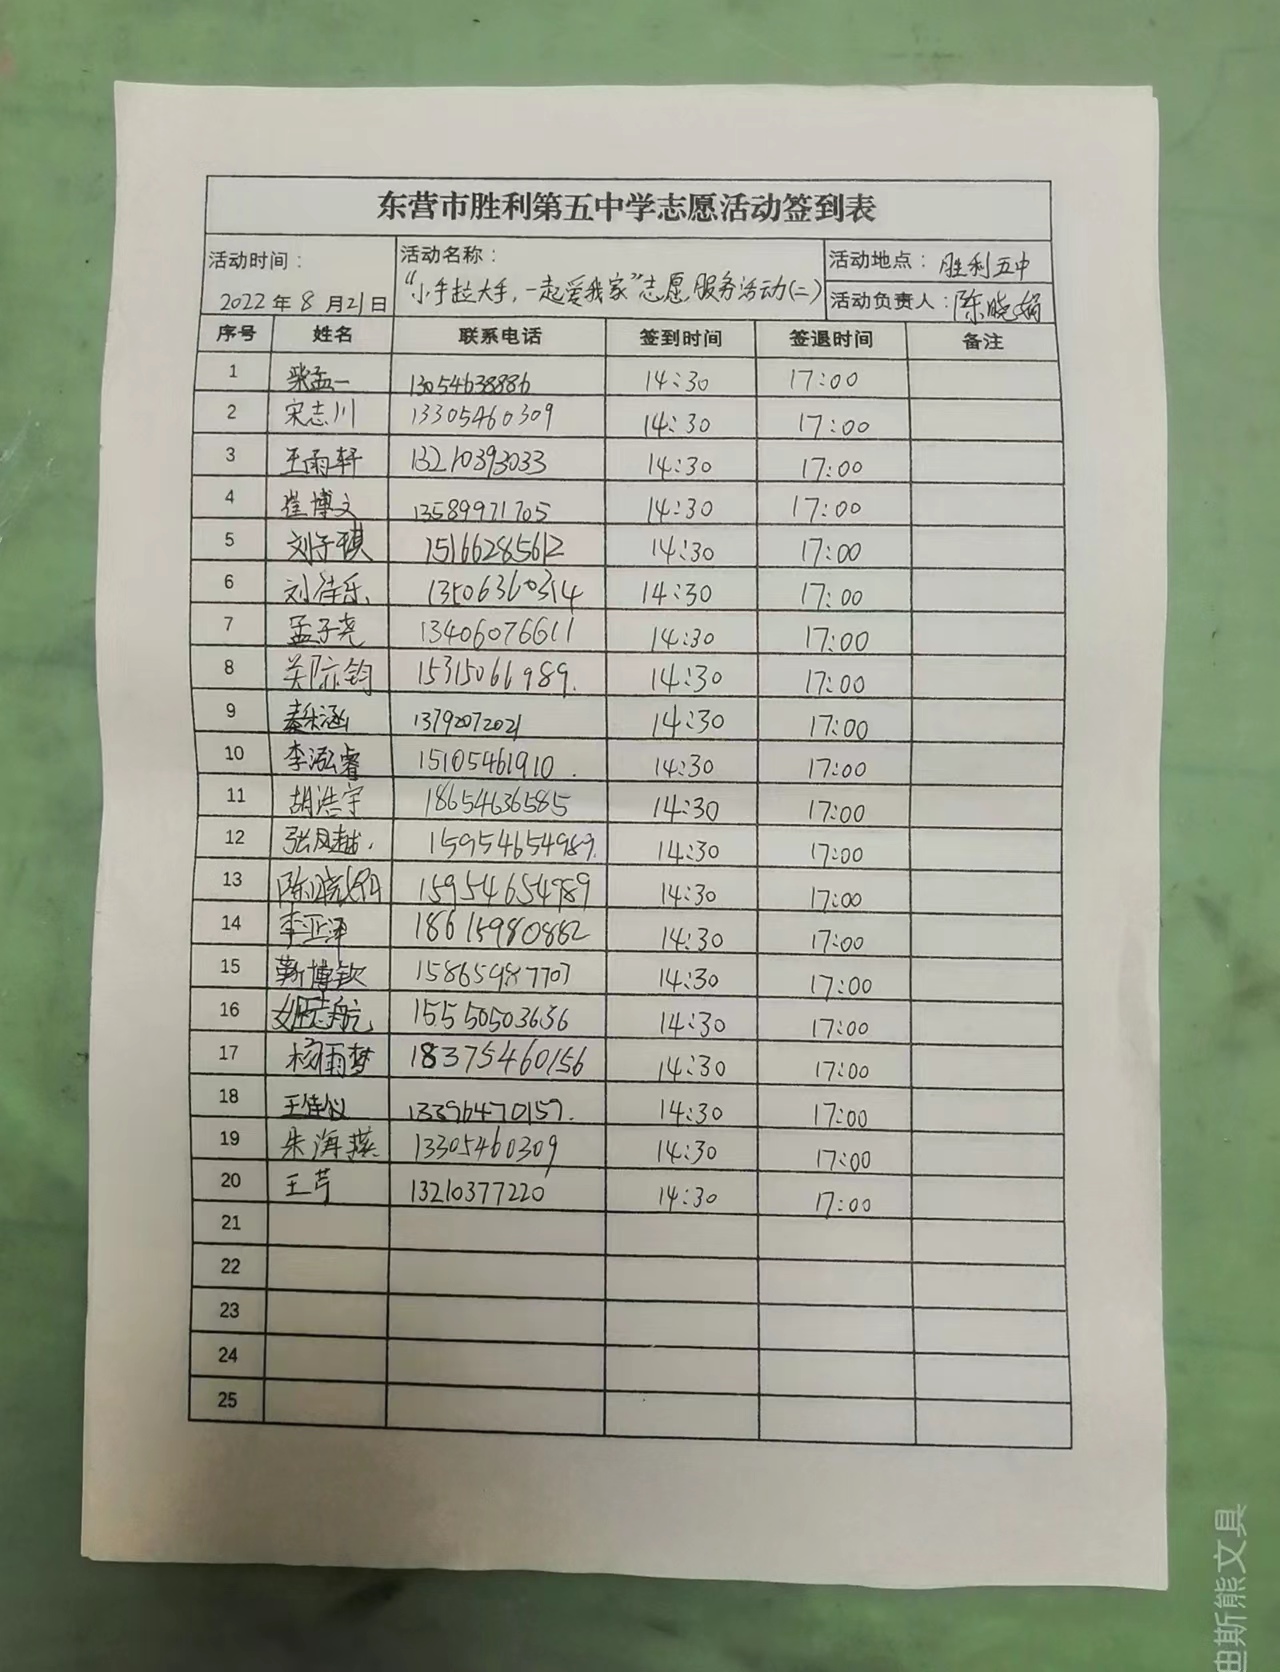 东营市胜利第五中学志愿活动签到表
活动时间： 2022年8月21日
活动名称： “小手拉大手，一起爱我家”志愿服务活动(二)
活动地点： 胜利五中
活动负责人：陈晓娟
序号 姓名 联系电话 签到时间 签退时间 备注
1 柴孟一 13054638886 14:30 17:00
2 宋志川 13305460309 14:30 17:00
3 王雨轩 13210393033 14:30 17:00
4 崔博文 13589971705 14:30 17:00
5 刘子琪 15166285612 14:30 17:00
6 刘佳乐 13506360314 14:30 17:00
7 孟子尧 13406076611 14:30 17:00
8 15315066989. 14:30 17:00
9 秦乐涵 13792072021 14:30 17:00
10 李泓睿 15105461910. 14:30 17:00
11 胡浩宇 18654636585 14:30 17:00
12 张凤越. 15954654989. 14:30 17:00
13 陈晓娟 15954654989 14:30 17:00
14 李亚泽 18615980882 14:30 17:00
15 靳博钦 15865987707 14:30 17:00
16 姬志航 15550503636 14:30 17:00
17 杨雨梦 18375460156 14:30 17:00
18 王佳仪 13396470157. 14:30 17:00
19 朱海燕 13305460309 14:30 17:00
20 王芹 13210377220 14:30 17:00
21
22
23
24
25
迪斯熊文具